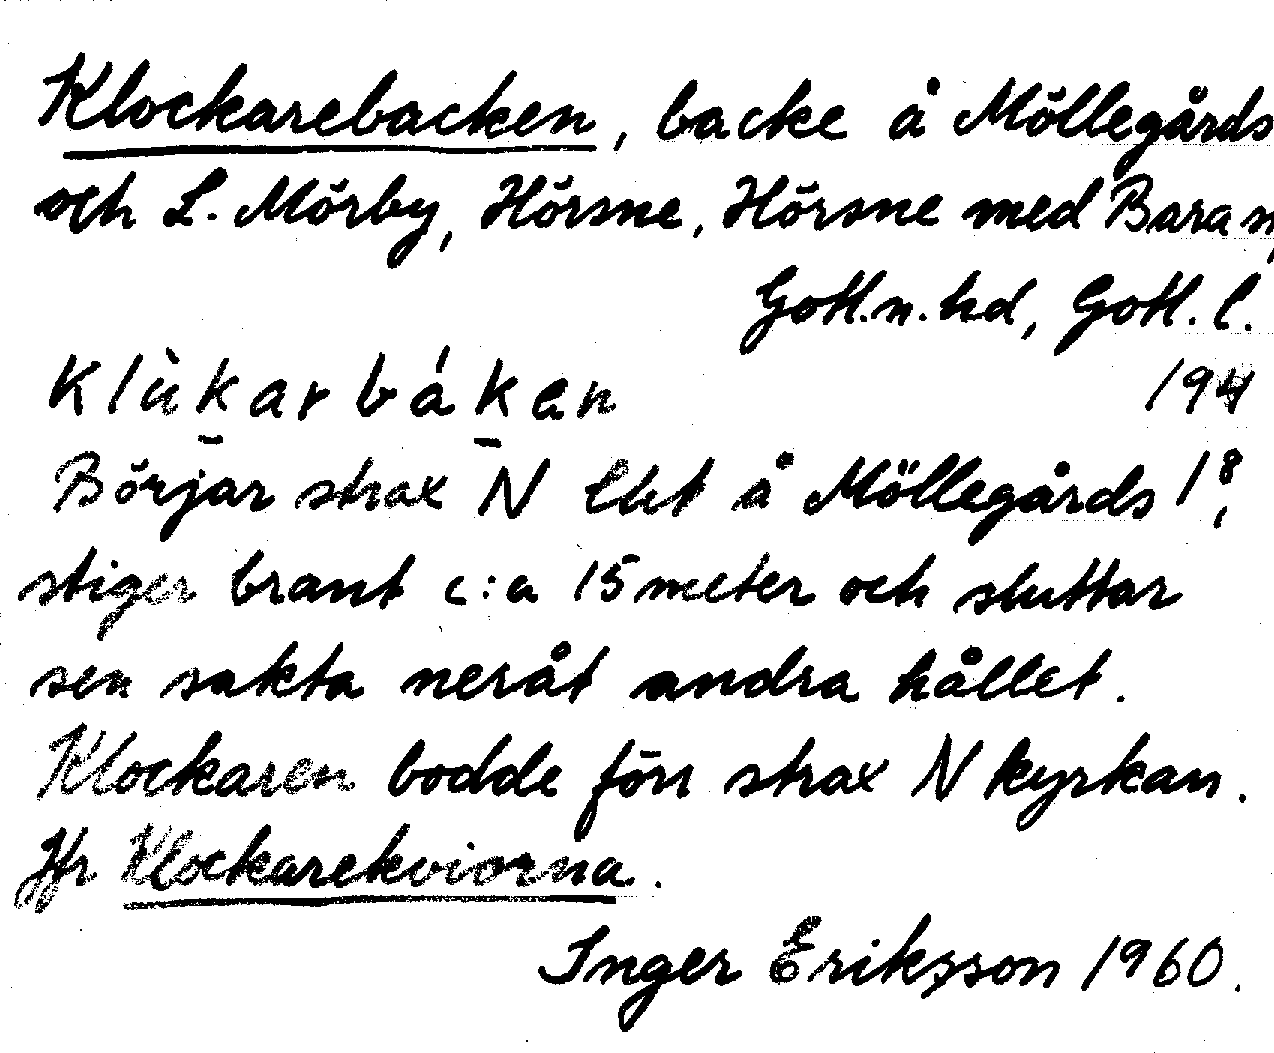 Klockarebacken, backe å Möllegårds
och L. Mörby, Hörsne, Hörsne med Bara
Gotl.n.hd, Gotl. l.
Klùkarbáken 194
Börjar strax N å Möllegårds 1⁸,
stiger brant c:a 15 meter och sluttar
sen sakta neråt andra hållet.
Klockaren bodde förr strax N kyrkan.
Jfr Klockarekviorna.
Inger Eriksson 1960.